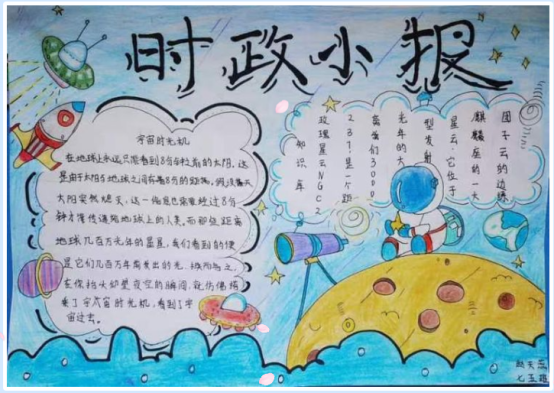 时政小报
宇宙时光机
在地球上永远只能看到8分钟之前的太阳，这
是由于太阳与地球之间有着8分的距离，假设某天
太阳突然熄灭，这一信息也需要经过8分
钟才能传递给地球上的人类，而那些距离
地球几百万光年的星星，我们看到的便
是它们几百万年前发出的光，换而言之，
在你抬头仰望夜空的瞬间，就仿佛搭
乘了宇宙时光机，看到了宇
宙过去。
因子云的边缘
麒麟座的一大
型发射
星云，它位于
光年的大
离我们3000
237是一个距
玫瑰星云NGC2
知识库
天乐
七五班